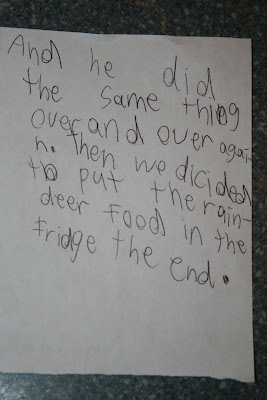 And he did
the same thing
over and over agai-
n. Then we dicided
to put the rain-
deer food in the
fridge the end.